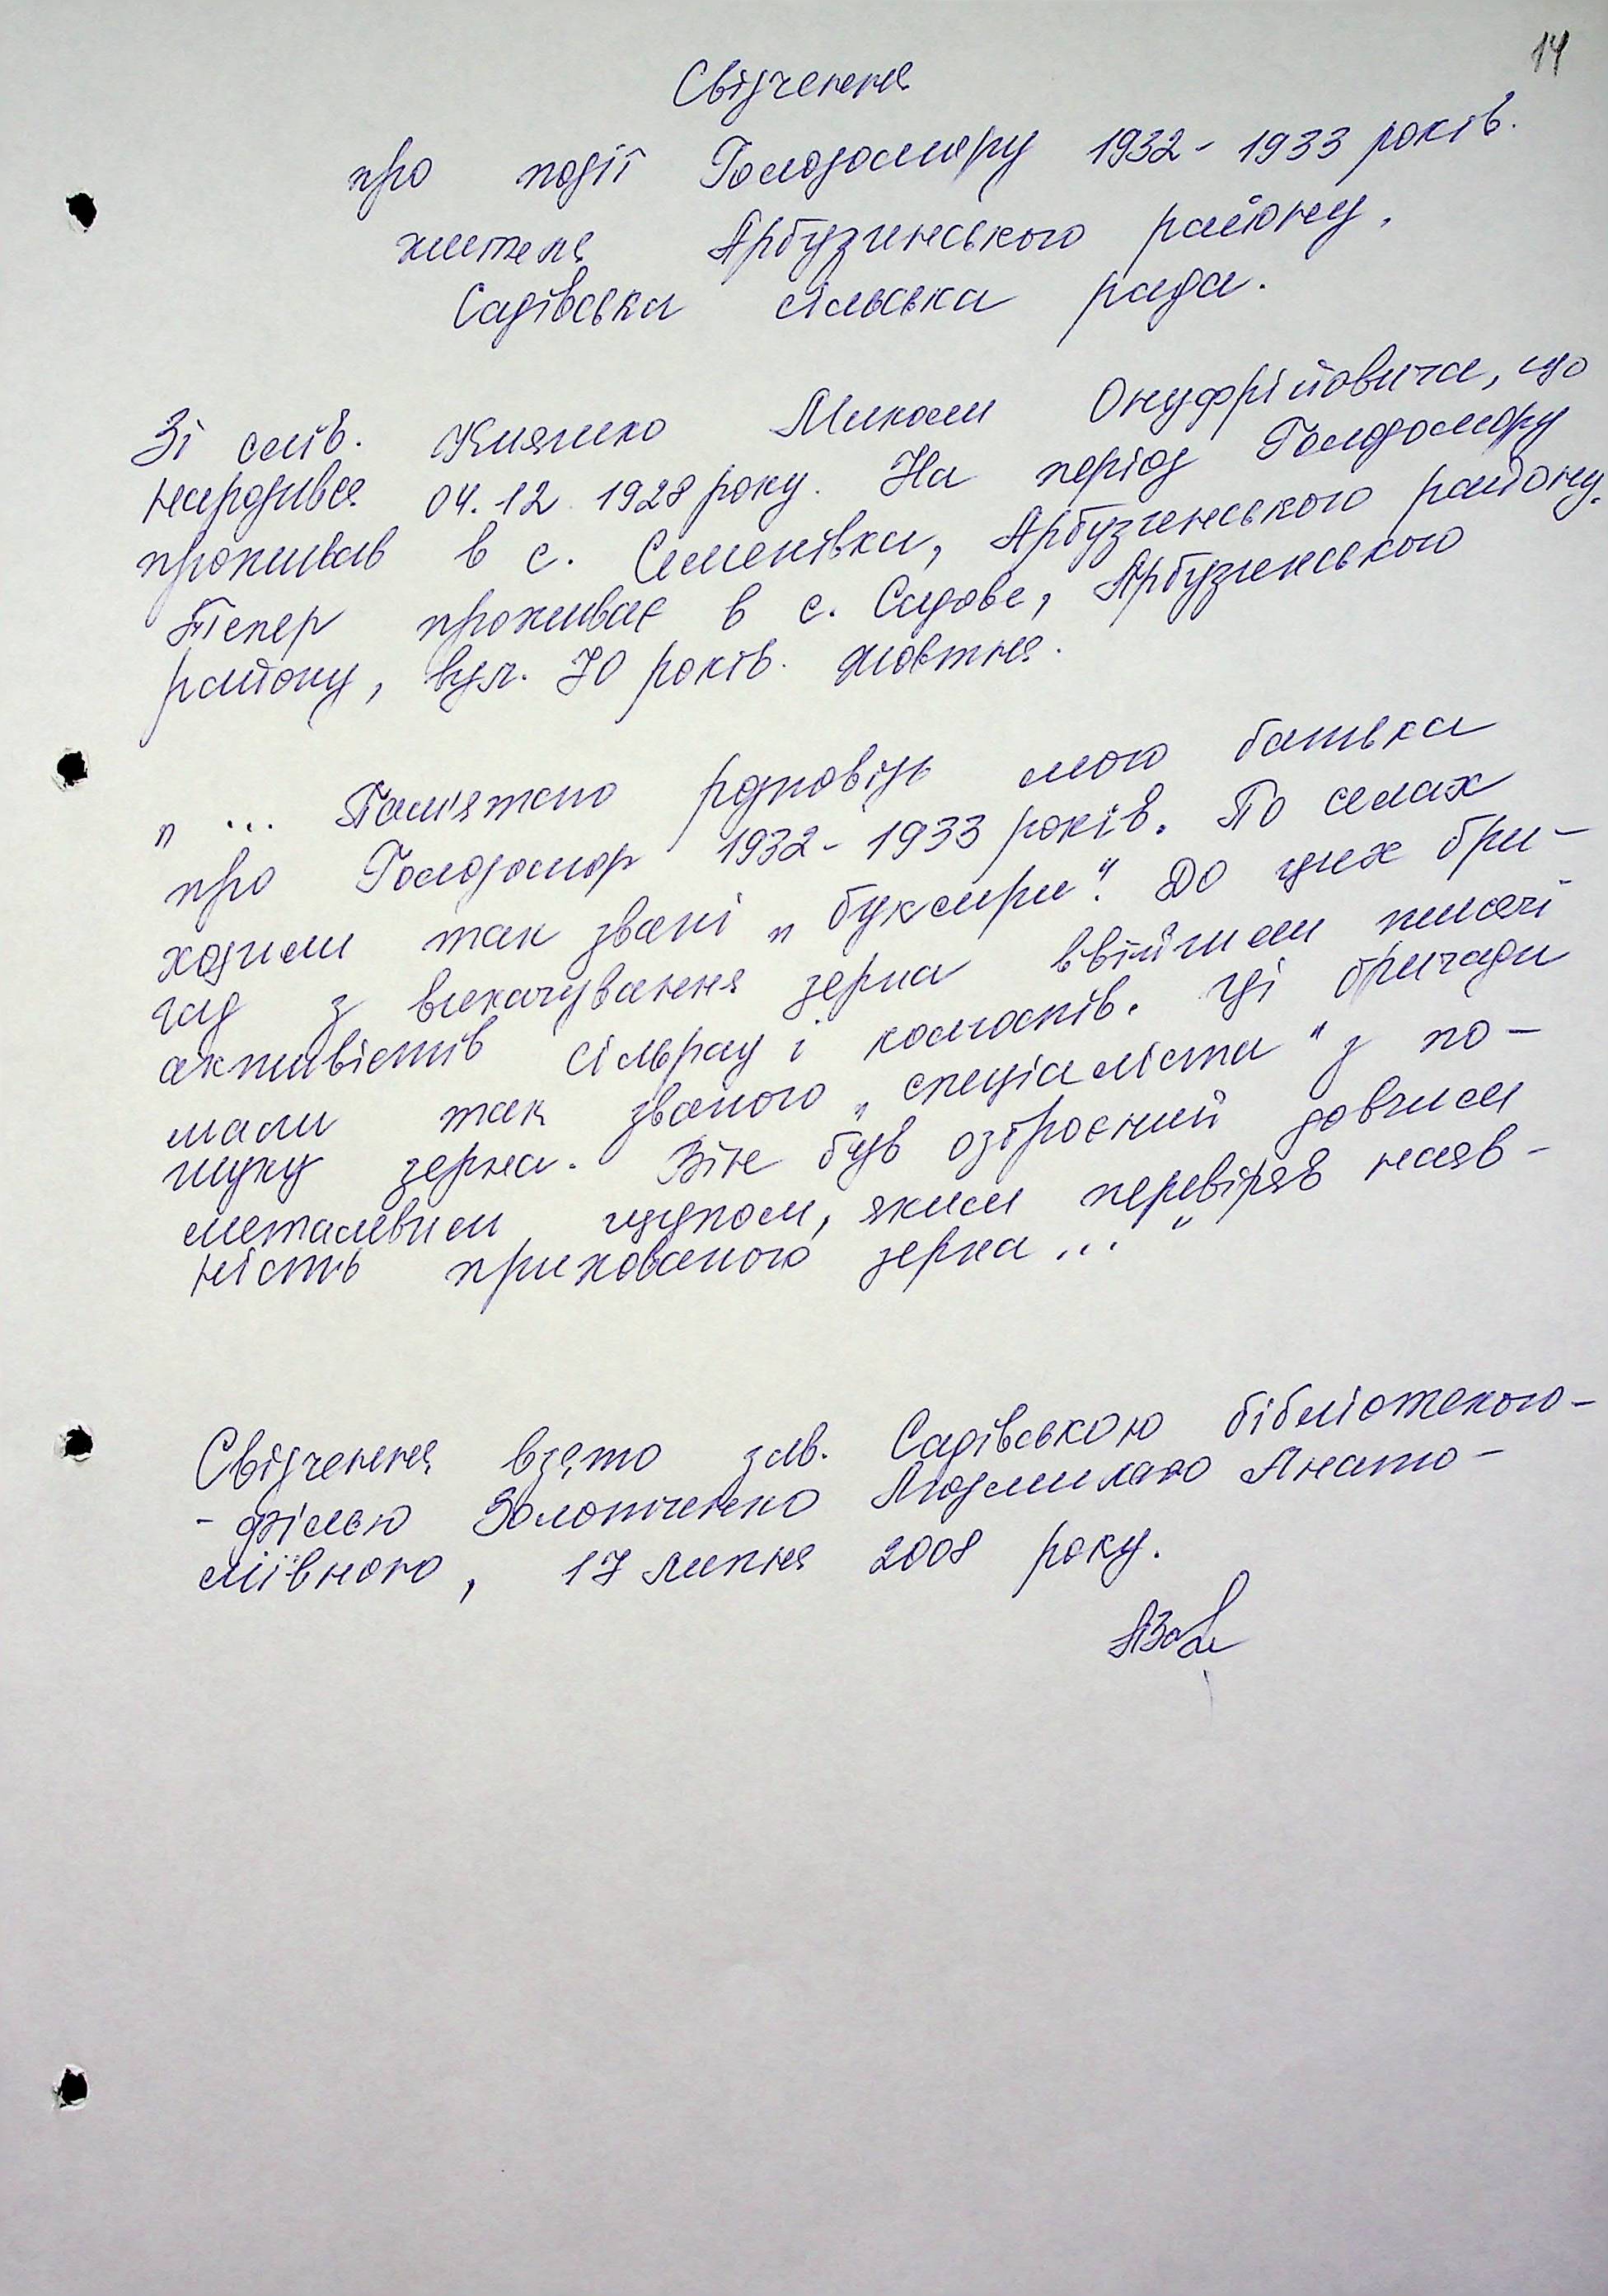 14
Свідчення
про події Голодомору 1932 - 1933 років.
жителя Арбузинського району,
Садівська сільська рада.
Зі слів. Княжко Миколи Онуфрійовича, що
народився 04. 12. 1928 року. На період Голодомору
проживав в с. Семенівка, Арбузинського району.
Тепер проживає в с. Садове, Арбузинського
району, вул. 70 років. Жовтня.
„ ... Пам'ятаю розповідь мого батька
про Голодомор 1932 - 1933 років. По селах
ходили так звані „ буксири ". До цих бри-
гад з викачування зерна ввійшли
активістів сільрад і колгоспів. Ці бригади
мали так званого „ спеціаліста " з по-
шуку зерна. Він був озброєний довгим
металевим щупом, яким перевіряв наяв-
ність прихованого зерна ... "
Свідчення взято зав. Садівською бібліотекою-
- філією Золотченко Людмилою Анато-
ліївною, 17 липня 2008 року.